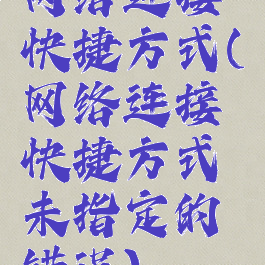 网络连接
快捷方式(
网络连接
快捷方式
未指定的
错误)